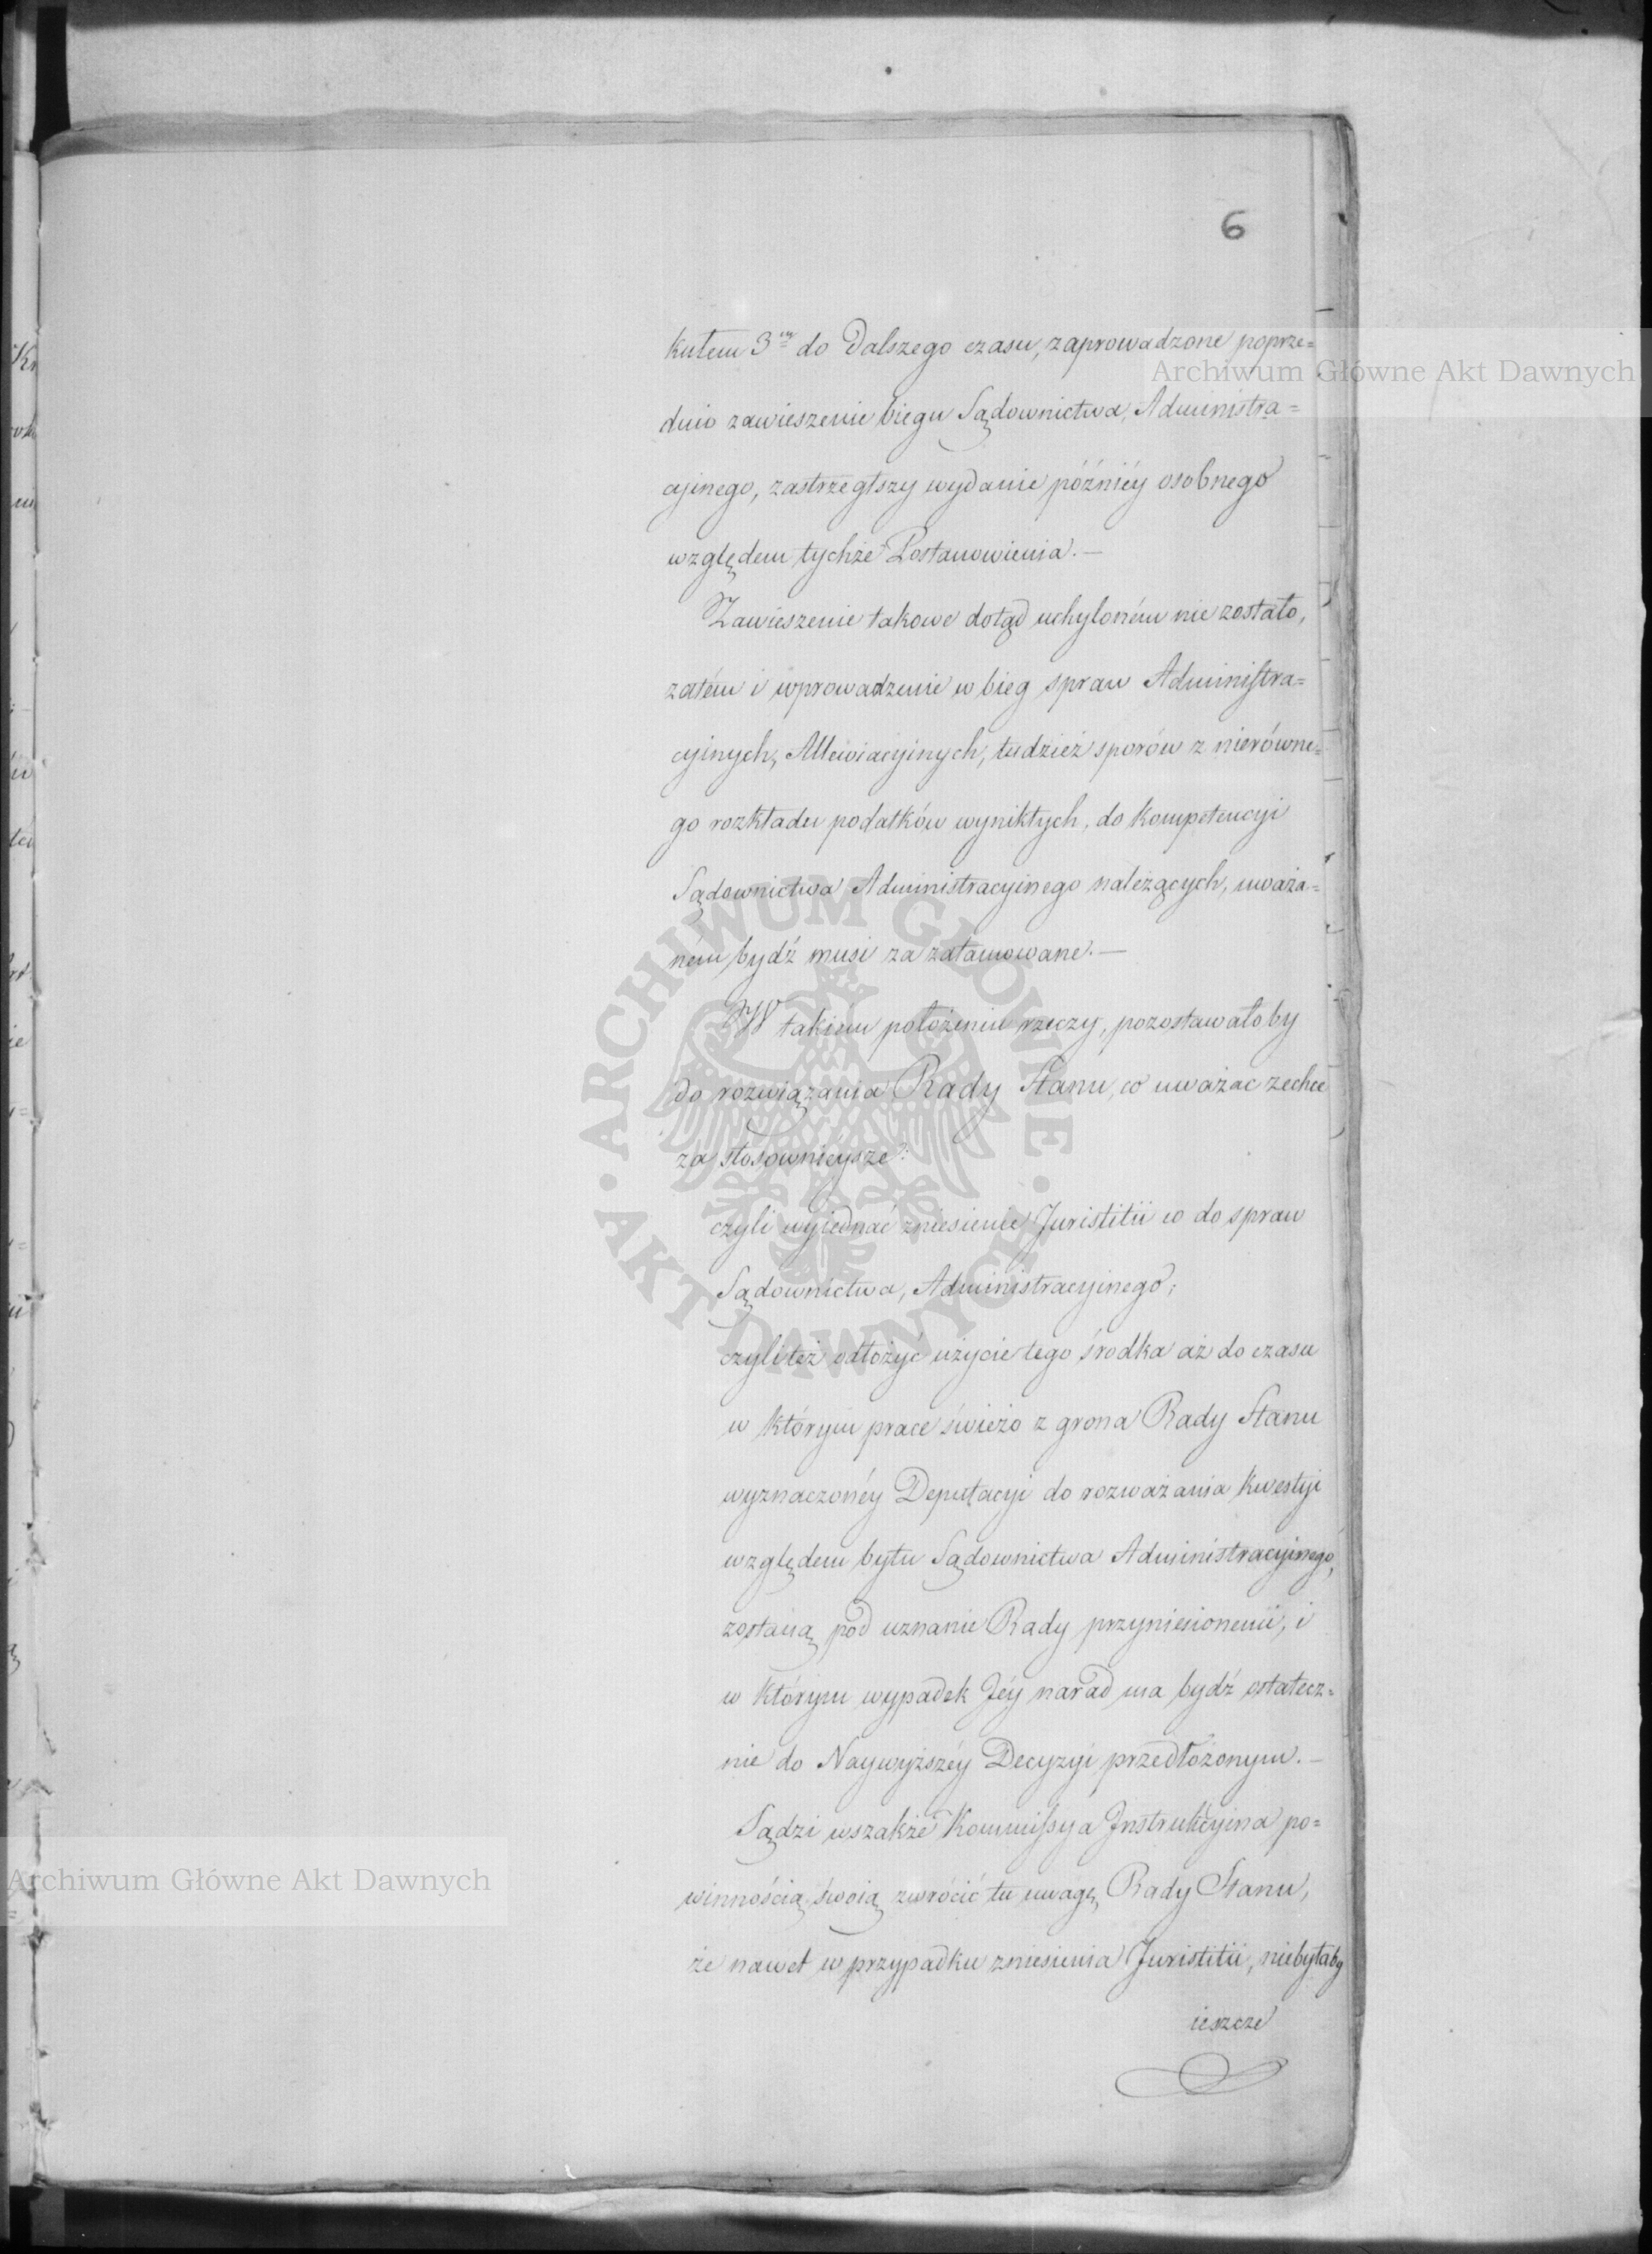 6
kułem 3<sup>m</sup> do dalszego czasu, zaprowadzone poprze=
dnio zawieszenie biegu Sądownictwa, Administra=
cyinego, zastrzegłszy wydanie późniéy osobnego
względem tychże Postanowienia. —
Zawieszenie takowe dotąd uchyloném nie zostało,
zatém i wprowadzenie w bieg spraw Administra=
cyinych, Allewiacyinych, tudzież sporów z nierówne=
go rozkładu podatków wynikłych, do kompetencyi
Sądownictwa Administracyinego należących, uważa=
ném bydź musi za zatamowane. —
W takim położeniu rzeczy, pozostawałoby
do rozwiązania Rady Stanu, co uważać zechce
za stosownieysze:
czyli wyiednać zniesienie Juristitii co do spraw
Sądownictwa, Administracyinego;
czyli też odłożyć użycie tego środka aż do czasu
w którym prace świeżo z grona Rady Stanu
wyznaczonéy Deputacyi do rozważania kwestyi
względem bytu Sądownictwa Administracyinego,
zostaną pod uznanie Rady przyniesionemi, i
w którym wypadek Jéy narad ma bydź ostatecz=
nie do Naywyższéy Decyzyi przedłożonym. —
Sądzi wszakże Kommissya Instrukcyina po=
winnością swoią zwrócić tu uwagę Rady Stanu,
że nawet w przypadku zniesienia Juristitii, niebyłaby
ieszcze
Archiwum Główne Akt Dawnych
ARCHIWUM GŁÓWNE
AKT DAWNYCH
Archiwum Główne Akt Dawnych